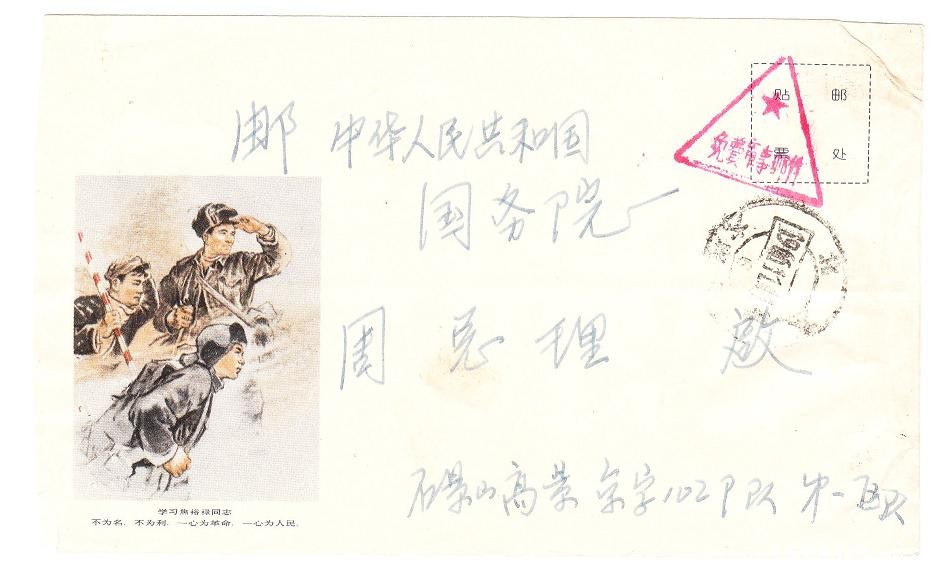 贴 邮
票 处
免费军事邮件
邮 中华人民共和国
国务院
周总理 啟
石景山高景京字102部队 第一
学习焦裕禄同志
不为名，不为利，一心为革命，一心为人民。